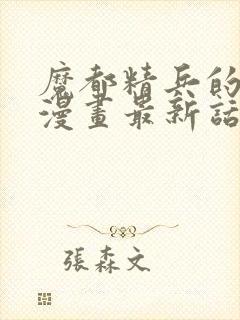 魔都精兵的
漫畫最新話
張森文